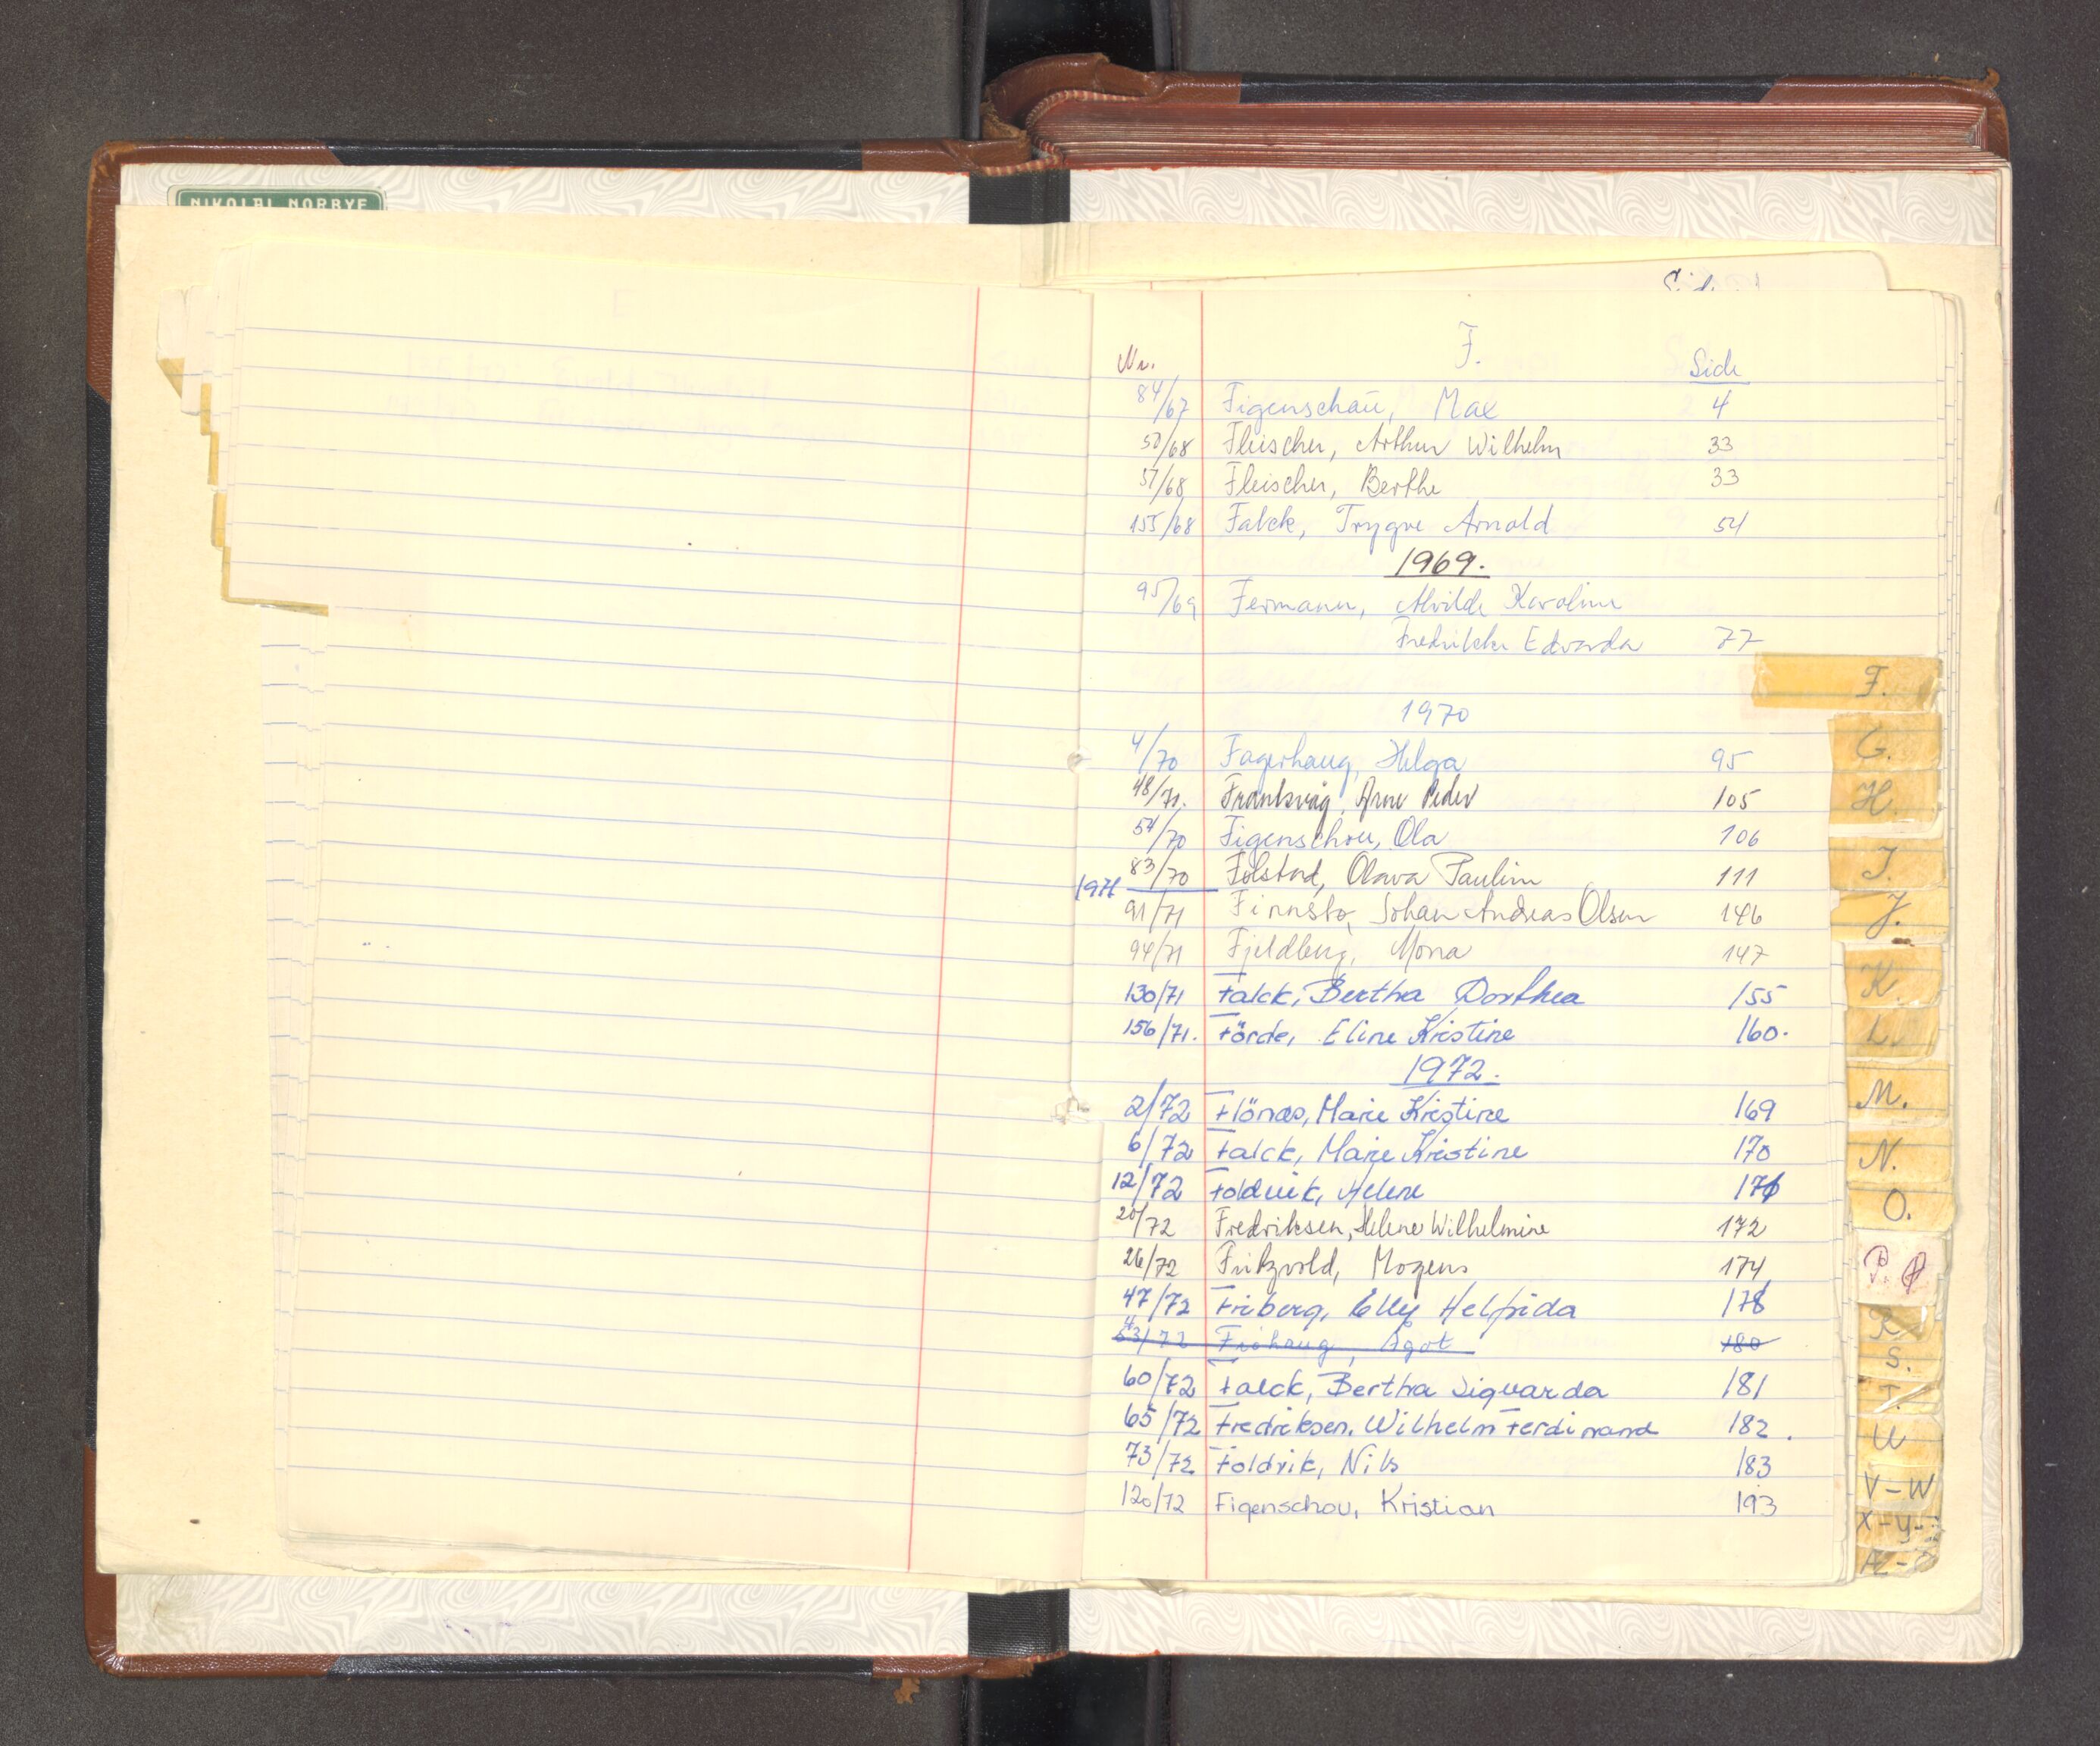 NIKOLAI NORBYE
F.
Nr. Side
84/67 Figenschau, Max 4
50/68 Fleischer, Arthur Wilhelm 33
51/68 Fleischer, Berthe 33
155/68 Falck, Trygve Arnold 54
1969.
95/69 Fermann, Alvilde Karoline
Fredrikke Edvarda 77
1970
4/70 Fagerhaug, Helga 95
48/71. Franksvåg, Arne Peder 105
54/70 Figenschou, Ola 106
83/70 Folstad, Olava Pauline 111
1971
91/71 Finnstø, Johan Andreas Olsen 146
94/71 Fjeldberg, Mona 147
130/71 Falck, Bertha Dorthea 155
156/71. Förde, Eline Kristine 160.
1972.
2/72 Flönæs, Marie Kristine 169
6/72 Falck, Marie Kristine 170
12/72 Foldvik, Helene 171
20/72 Fredriksen, Helene Wilhelmine 172
26/72 Fritzvold, Mogens 174
47/72 Friberg, Elly Helfrida 178
53/72 Fröhaug, Ågot 180
60/72 Falck, Bertha Sigvarda 181
65/72 Fredriksen, Wilhelm Ferdinand 182.
73/72 Foldvik, Nils 183
120/72 Figenschou, Kristian 193
F.
G.
H.
I.
J.
K.
L.
M.
N.
O.
P.
R
S.
T.
U
V-W
X-Y-
Æ-Ø